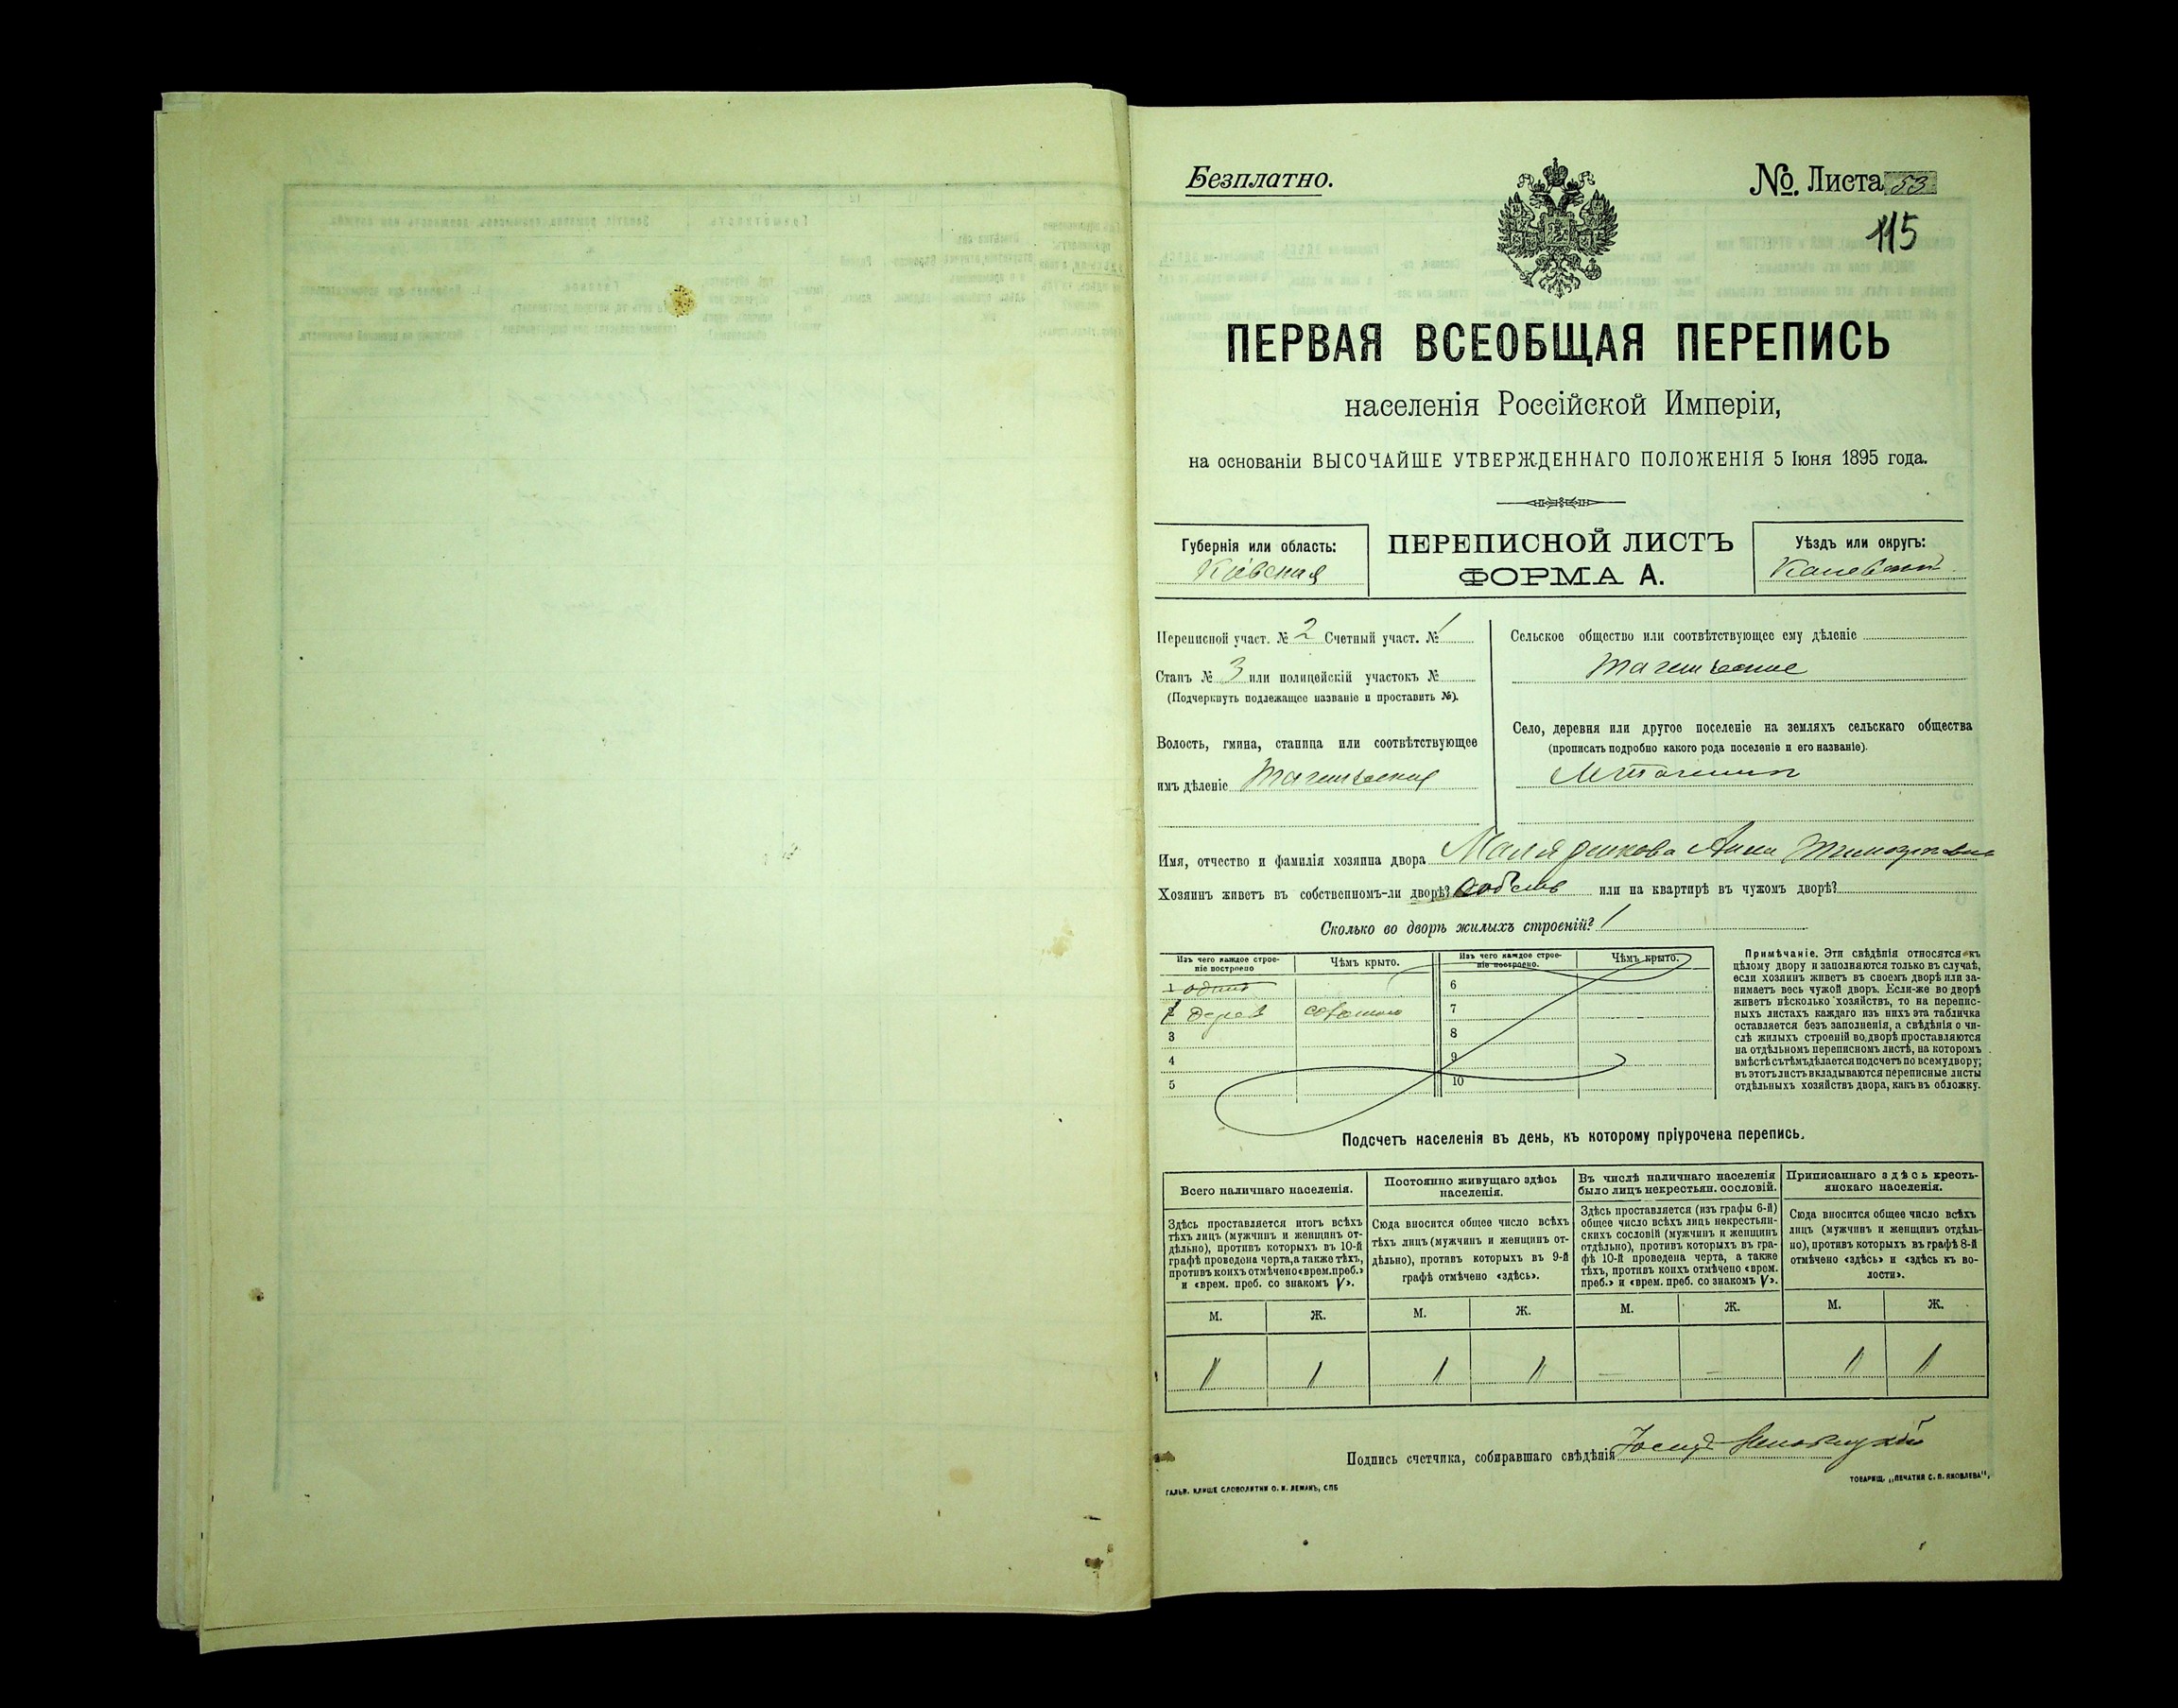 Безплатно.
№. Листа 53
115
ПЕРВАЯ ВСЕОБЩАЯ ПЕРЕПИСЬ
населенія Россійской Имперіи,
на основаніи ВЫСОЧАЙШЕ УТВЕРЖДЕННАГО ПОЛОЖЕНІЯ 5 Іюня 1895 года.
Губернія или область:
Кіевская
ПЕРЕПИСНОЙ ЛИСТЪ
ФОРМА А.
Уѣздъ или округъ:
Каневскій
Переписной участ. № 2 Счетный участ. № 1
Станъ № 3 или полицейскій участокъ №
(Подчеркнуть подлежащее названіе и проставить №).
Волость, гмина, станица или соотвѣтствующее
имъ дѣленіе
Сельское общество или соотвѣтствующее ему дѣленіе
Село, деревня или другое поселеніе на земляхъ сельскаго общества
(прописать подробно какого рода поселеніе и его названіе).
Имя, отчество и фамилія хозяина двора Маляренкова Анна
Хозяинъ живетъ въ собственномъ-ли дворѣ? или на квартирѣ въ чужомъ дворѣ?
Сколько во дворѣ жилыхъ строеній? 1
Изъ чего каждое строе-
ніе построено
Чѣмъ крыто.
Изъ чего каждое строе-
ніе построено.
Чѣмъ крыто.
1 одинъ
дерев
соломою
3
4
5
6
7
8
9
10
Примѣчаніе. Эти свѣдѣнія относятся къ
цѣлому двору и заполняются только въ случаѣ,
если хозяинъ живетъ въ своемъ дворѣ или за-
нимаетъ весь чужой дворъ. Если-же во дворѣ
живетъ нѣсколько хозяйствъ, то на перепис-
ныхъ листахъ каждаго изъ нихъ эта табличка
оставляется безъ заполненія, а свѣдѣнія о чи-
слѣ жилыхъ строеній во дворѣ проставляются
на отдѣльномъ переписномъ листѣ, на которомъ
вмѣстѣ съ тѣмъ дѣлается подсчетъ по всему двору;
въ этотъ листъ вкладываются переписные листы
отдѣльныхъ хозяйствъ двора, какъ въ обложку.
Подсчетъ населенія въ день, къ которому пріурочена перепись.
Всего наличнаго населенія.
Здѣсь проставляется итогъ всѣхъ
тѣхъ лицъ (мужчинъ и женщинъ от-
дѣльно), противъ которыхъ въ 10-й
графѣ проведена черта, а также тѣхъ,
противъ коихъ отмѣчено «врем. преб.»
и «врем. преб. со знакомъ V».
Постоянно живущаго здѣсь
населенія.
Сюда вносится общее число всѣхъ
тѣхъ лицъ (мужчинъ и женщинъ от-
дѣльно), противъ которыхъ въ 9-й
графѣ отмѣчено «здѣсь».
Въ числѣ наличнаго населенія
было лицъ некрестьян. сословій.
Здѣсь проставляется (изъ графы 6-й)
общее число всѣхъ лицъ некрестьян-
скихъ сословій (мужчинъ и женщинъ
отдѣльно), противъ которыхъ въ гра-
фѣ 10-й проведена черта, а также
тѣхъ, противъ коихъ отмѣчено «врем.
преб.» и «врем. преб. со знакомъ V».
Приписаннаго здѣсь кресть-
янскаго населенія.
Сюда вносится общее число всѣхъ
лицъ (мужчинъ и женщинъ отдѣль-
но), противъ которыхъ въ графѣ 8-й
отмѣчено «здѣсь» и «здѣсь къ во-
лости».
М. Ж. М. Ж. М. Ж. М. Ж.
1 1 1 1 – – 1 1
Подпись счетчика, собиравшаго свѣдѣнія
ГАЛЬВ. КЛИШЕ СЛОВОЛИТНИ О. И. ЛЕМАНЪ, СПБ
ТОВАРИЩ. „ПЕЧАТНЯ С. П. ЯКОВЛЕВА".